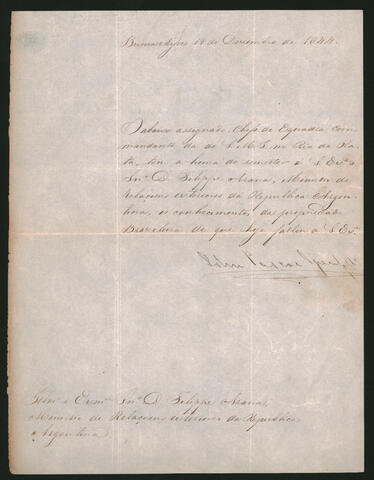 Buenos Ayres de Dezembro de 1844.
abaixo assignado, Chefe de Esquadra, Com-
mandante da de S. M. I. no Rio da Pra-
ta, tem a honra de remetter á S. Exª o
Snr. D. Felippe Arana, Ministro de
Relaçoens exteriores da Republica Argen-
tina, os conhecimentos, da propriedade
Brasileira de que hoje fallou á S. Exª.
John Pascoe
Illmo. e Exmo. Snr. D. Felippe Arana,
Ministro de Relaçoens exteriores da Republica
Argentina